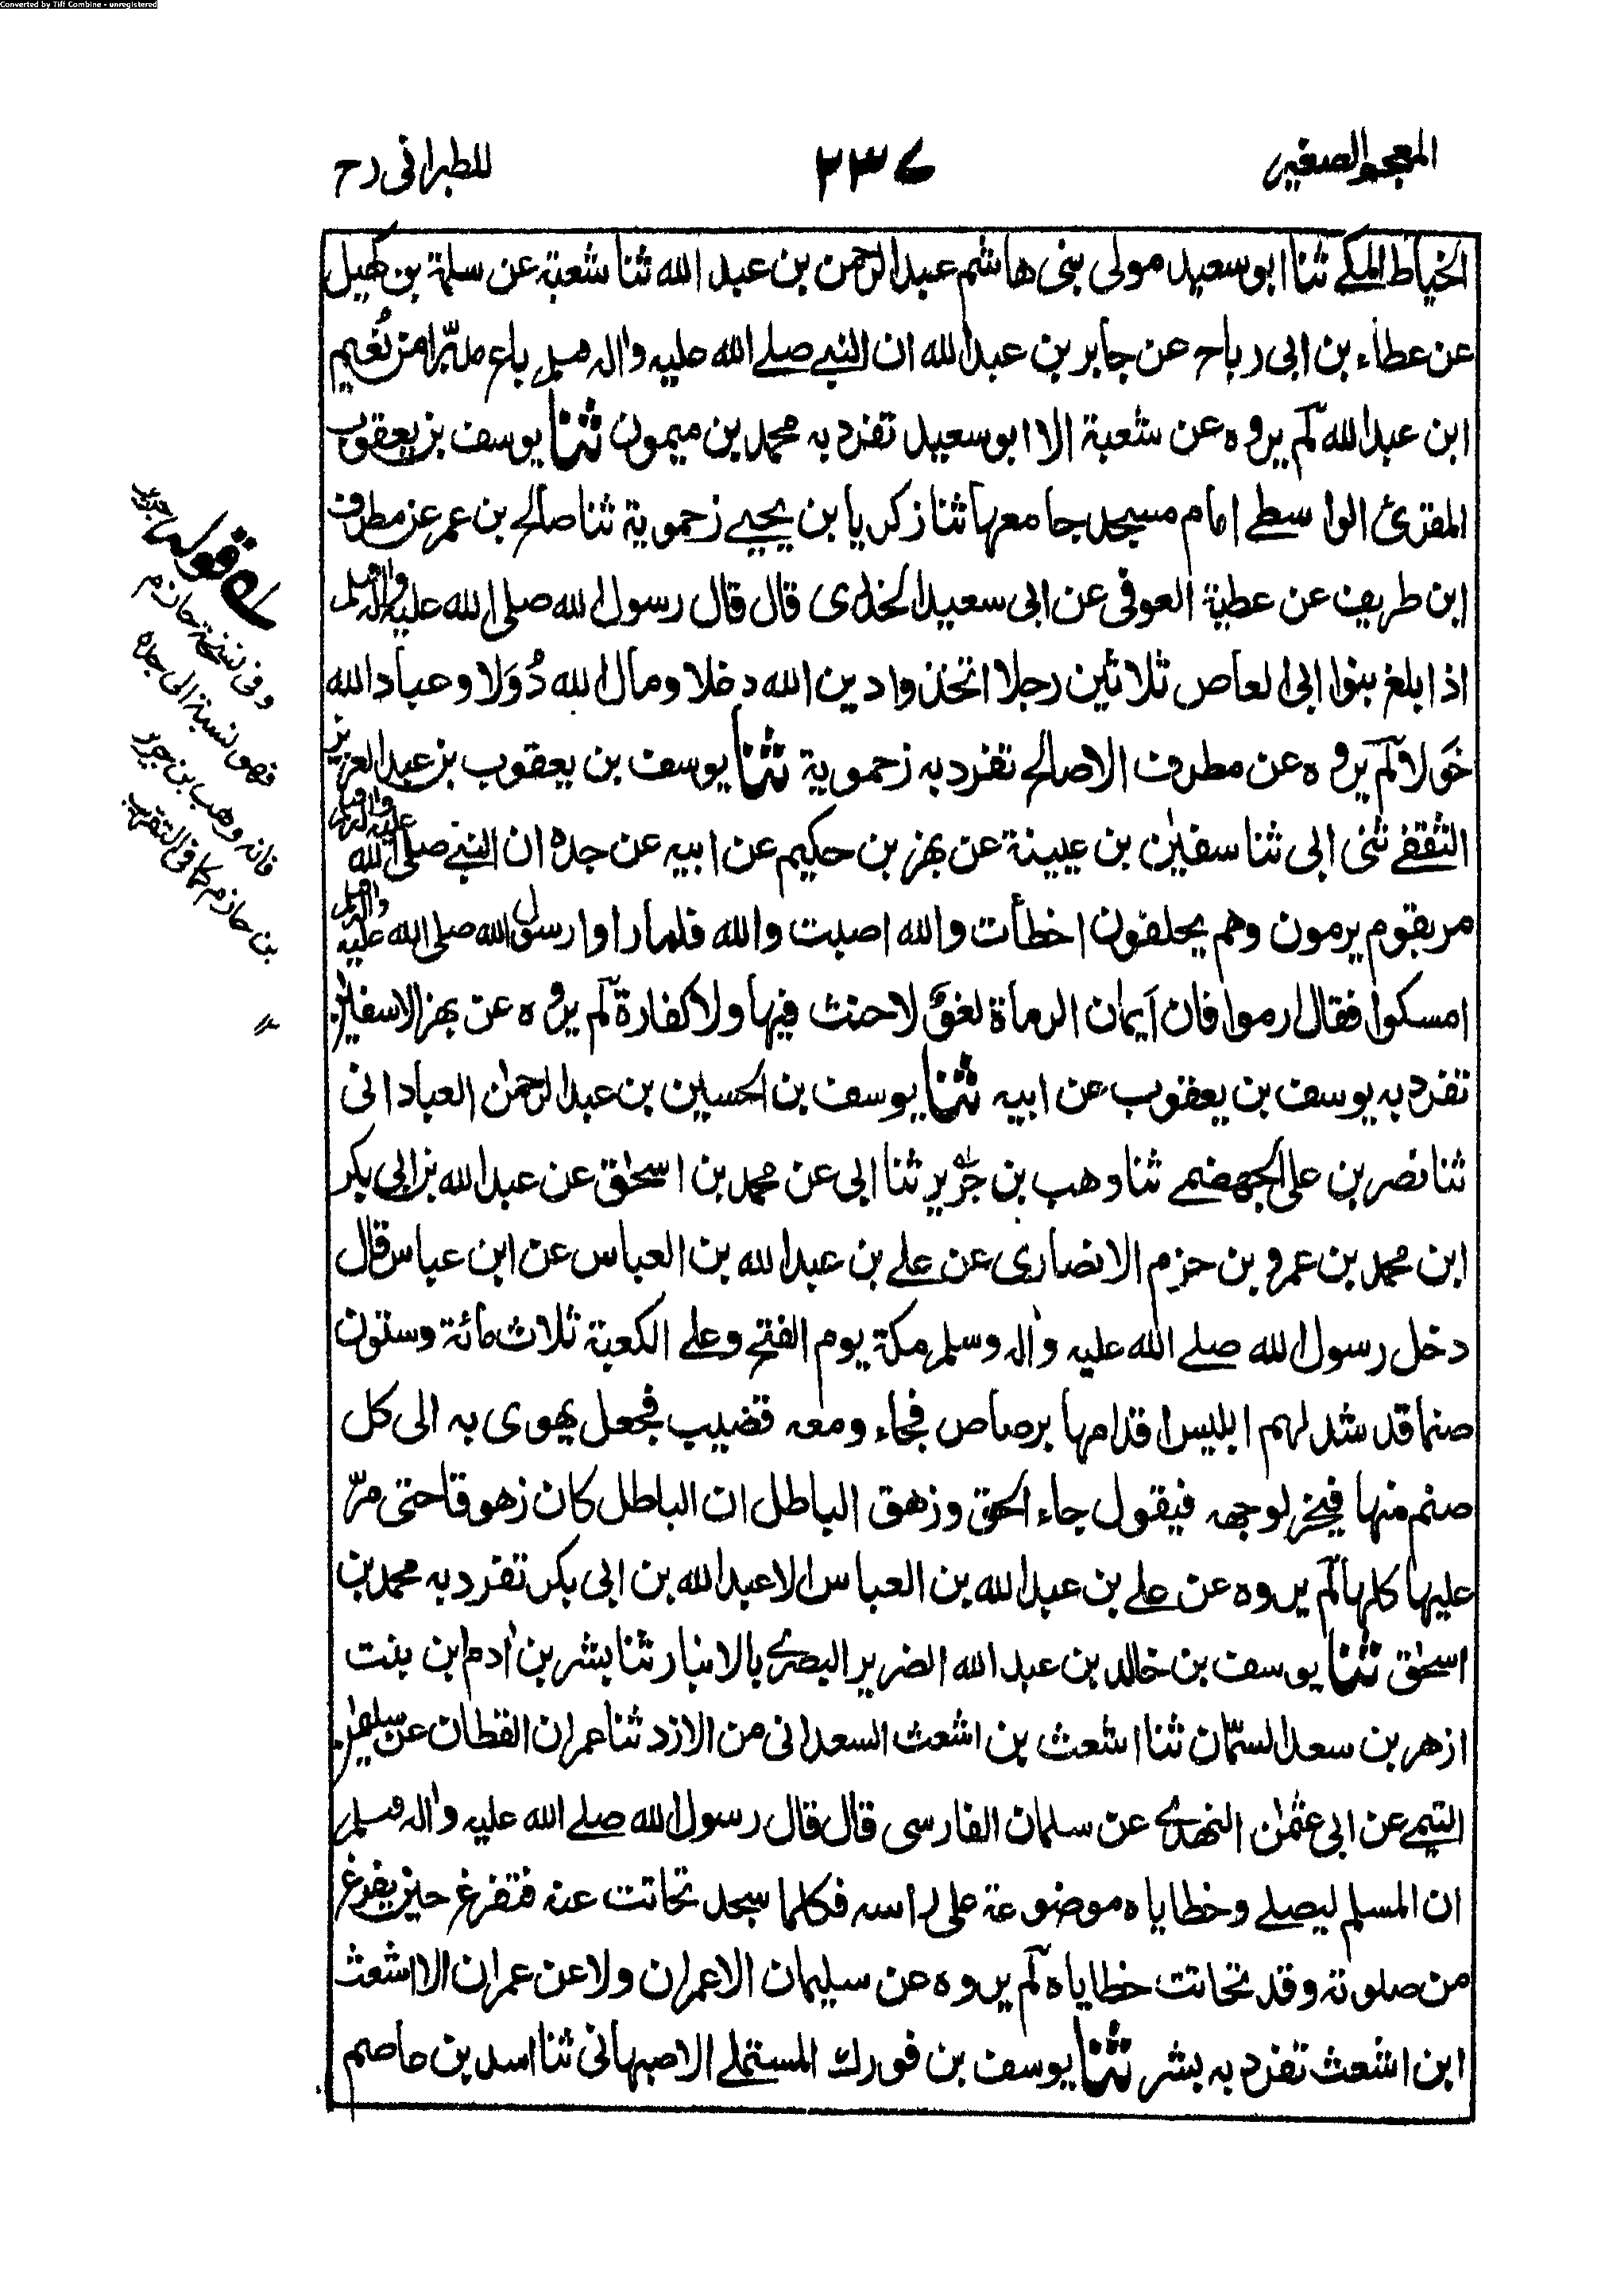 Converted by Tiff Combine - unregistered
المعجم الصغير
٢٣٧
للطبرانی رح
الخیاط المکے ثنا ابو سعید مولی بنی هاشم عبد الرحمن بن عبد الله ثنا شعبة عن سلمة بن کهیل
عن عطاء بن ابی رباح عن جابر بن عبد الله ان النبے صلے الله علیه واٰله وسلم باع مدبّرا من نُعیم
ابن عبد الله لم یروه عن شعبة الا ابو سعید تفرد به محمد بن میمون ثنا یوسف بن یعقوب
المقرئ الواسطے امام مسجد جامعها ثنا زکریا بن یحیے زحمویة ثنا صالح بن عمر عن مطرف
ابن طریف عن عطیة العوفی عن ابی سعید الخدری قال قال رسول الله صلی الله علیه واٰله وسلم
اذا بلغ بنوا ابی العاص ثلاثین رجلا اتخذوا دین الله دخلا ومال الله دُوَلا وعباد الله
خَوَلا لم یروه عن مطرف الا صالح تفرد به زحمویة ثنا یوسف بن یعقوب بن عبد العزیز
الثقفے ثنی ابی ثنا سفیٰن بن عیینة عن بهز بن حکیم عن ابیه عن جده ان النبے صلی الله علیه واٰله وسلم
مر بقوم یرمون وهم یحلفون اخطأت والله اصبت والله فلما راوا رسول الله صلی الله علیه واٰله وسلم
امسکوا فقال ارموا فان اَیمان الرماة لغوٌ لا حنث فیها ولا کفارة لم یروه عن بهز الا سفیٰن
تفرد به یوسف بن یعقوب عن ابیه ثنا یوسف بن الحسین بن عبد الرحمٰن العبادانی
ثنا نصر بن علی الجهضمے ثنا وهب بن جریر ثنا ابی عن محمد بن اسحٰق عن عبد الله بن ابی بکر
ابن محمد بن عمرو بن حزم الانصاری عن علے بن عبد الله بن العباس عن ابن عباس قال
دخل رسول الله صلے الله علیه واٰله وسلم مکة یوم الفتح وعلے الکعبة ثلاث مائة وستون
صنما قد شد لهم ابلیس اقدامها برصاص فجاء ومعه قضیب فجعل یهوی به الی کل
صنم منها فیخر لوجهه فیقول جاء الحق وزهق الباطل ان الباطل کان زهوقا حتی مرّ
علیها کلها لم یروه عن علے بن عبد الله بن العباس الا عبد الله بن ابی بکر تفرد به محمد بن
اسحٰق ثنا یوسف بن خالد بن عبد الله الضریر البصرے بالانبار ثنا بشر بن اٰدم ابن بنت
ازهر بن سعد السمّان ثنا اشعث بن اشعث السعدانی من الازد ثنا عمران القطان عن سلیمٰن
التیمے عن ابی عثمٰن النهدے عن سلمان الفارسی قال قال رسول الله صلے الله علیه واٰله وسلم
ان المسلم لیصلے وخطایاه موضوعة علی راسه فکلما سجد تحاتت عنه فتفرغ حین یفرغ
من صلوته وقد تحاتت خطایاه لم یروه عن سلیمان الا عمران ولا عن عمران الا اشعث
ابن اشعث تفرد به بشر ثنا یوسف بن فورك المستملے الاصبهانی ثنا اسد بن عاصم
له قوله جریر
وفی نسخة حازم
فهو نسبة الی جده
فانه وهب بن جریر
بن حازم کما فی التقریب